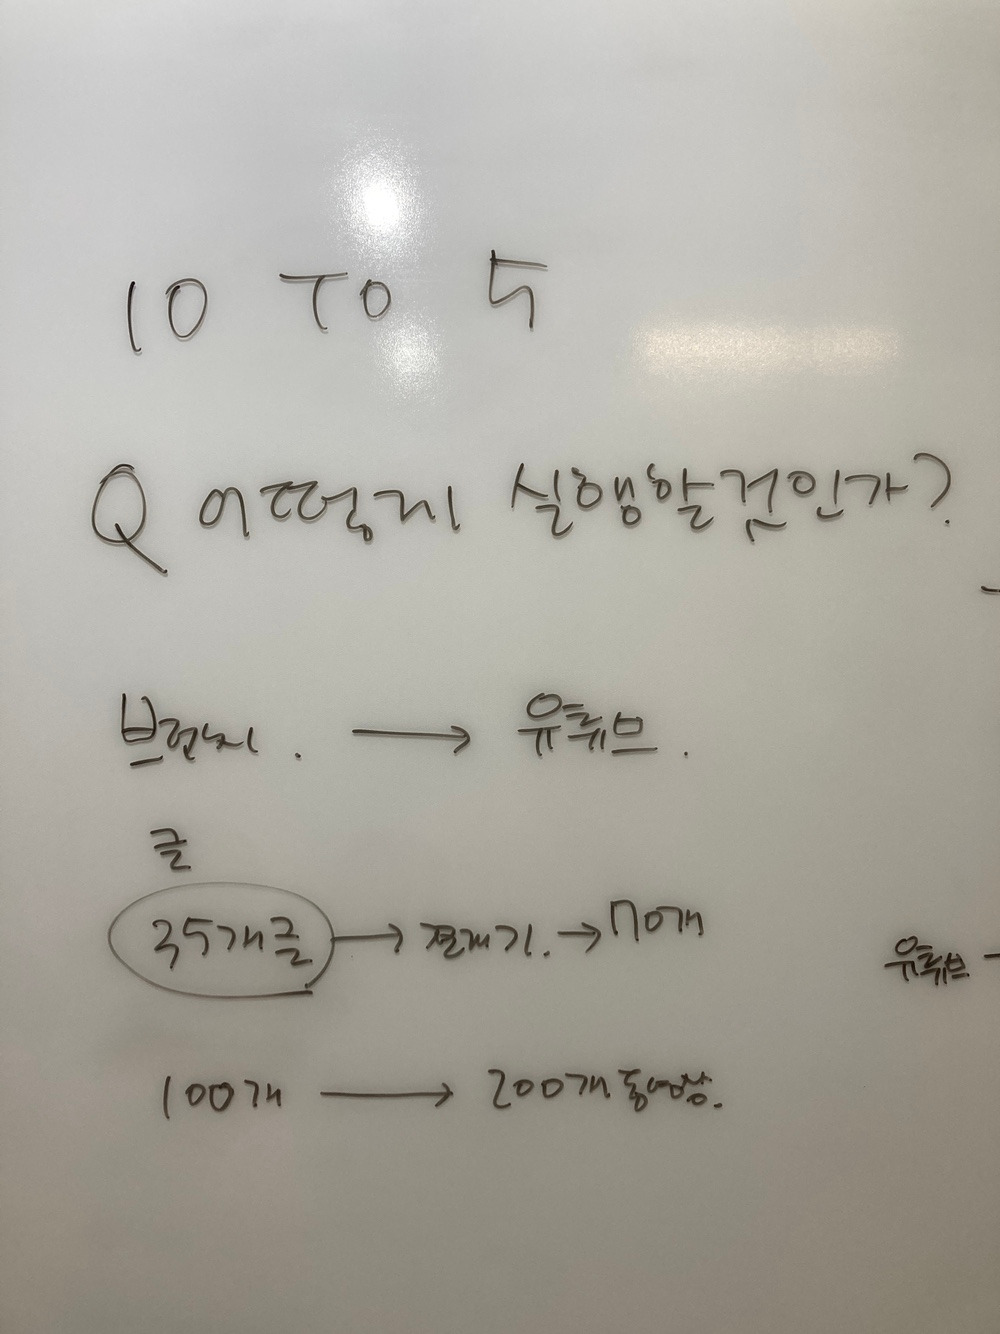 10 TO 5
Q 어떻게 실행할것인가?
브런치. → 유튜브.
글
35개글 → → 70개
유튜브
100개 → 200개 동영상.